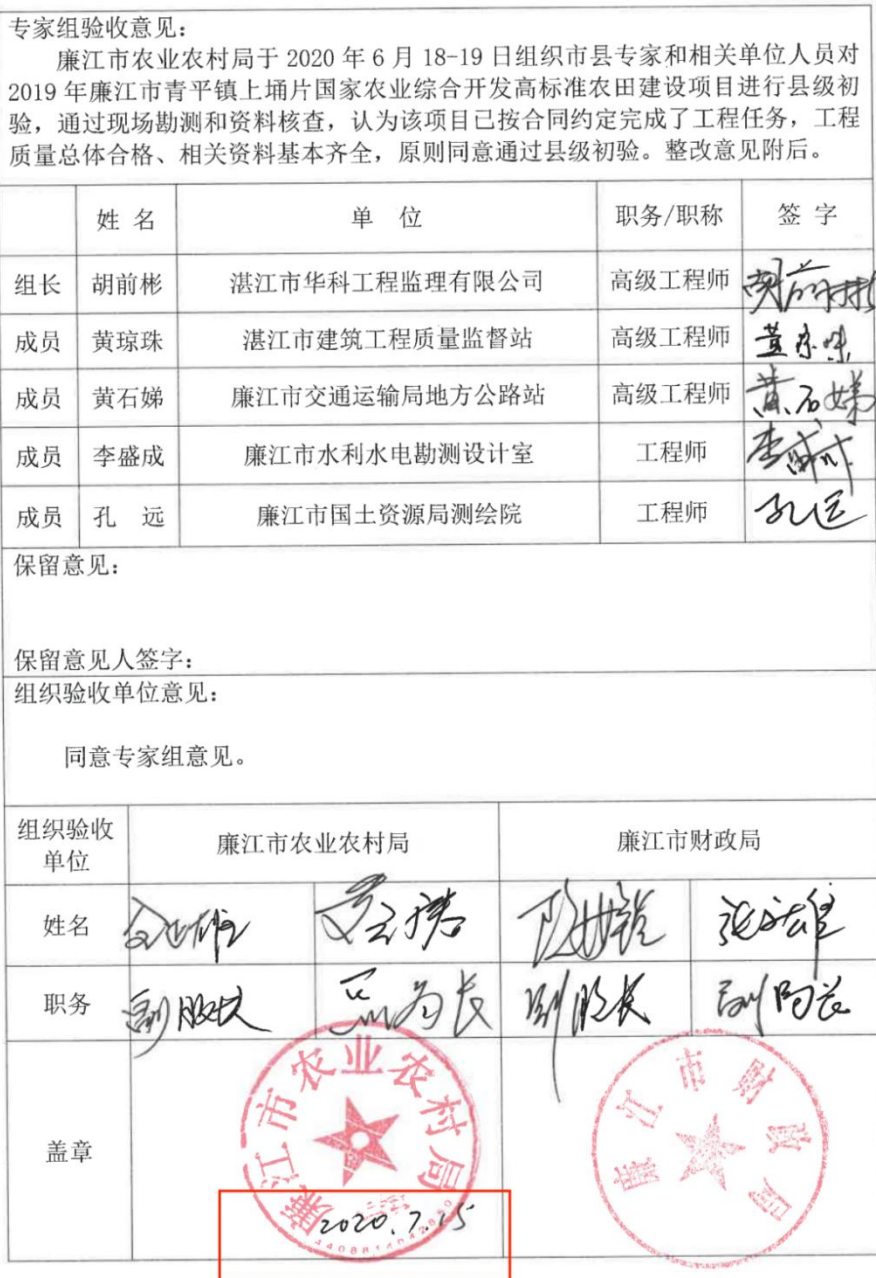 专家组验收意见：
廉江市农业农村局于 2020 年 6 月 18-19 日组织市县专家和相关单位人员对
2019 年廉江市青平镇上埇片国家农业综合开发高标准农田建设项目进行县级初
验，通过现场勘测和资料核查，认为该项目已按合同约定完成了工程任务，工程
质量总体合格、相关资料基本齐全，原则同意通过县级初验。整改意见附后。
姓 名 单 位 职务/职称 签 字
组长 胡前彬 湛江市华科工程监理有限公司 高级工程师 胡前彬
成员 黄琼珠 湛江市建筑工程质量监督站 高级工程师 黄琼珠
成员 黄石娣 廉江市交通运输局地方公路站 高级工程师 黄石娣
成员 李盛成 廉江市水利水电勘测设计室 工程师 李盛成
成员 孔 远 廉江市国土资源局测绘院 工程师 孔远
保留意见：
保留意见人签字：
组织验收单位意见：
同意专家组意见。
组织验收
单位
廉江市农业农村局 廉江市财政局
姓名
职务 副股长 副局长 副股长 副局长
盖章
廉江市农业农村局
廉江市财政局
2020.7.15